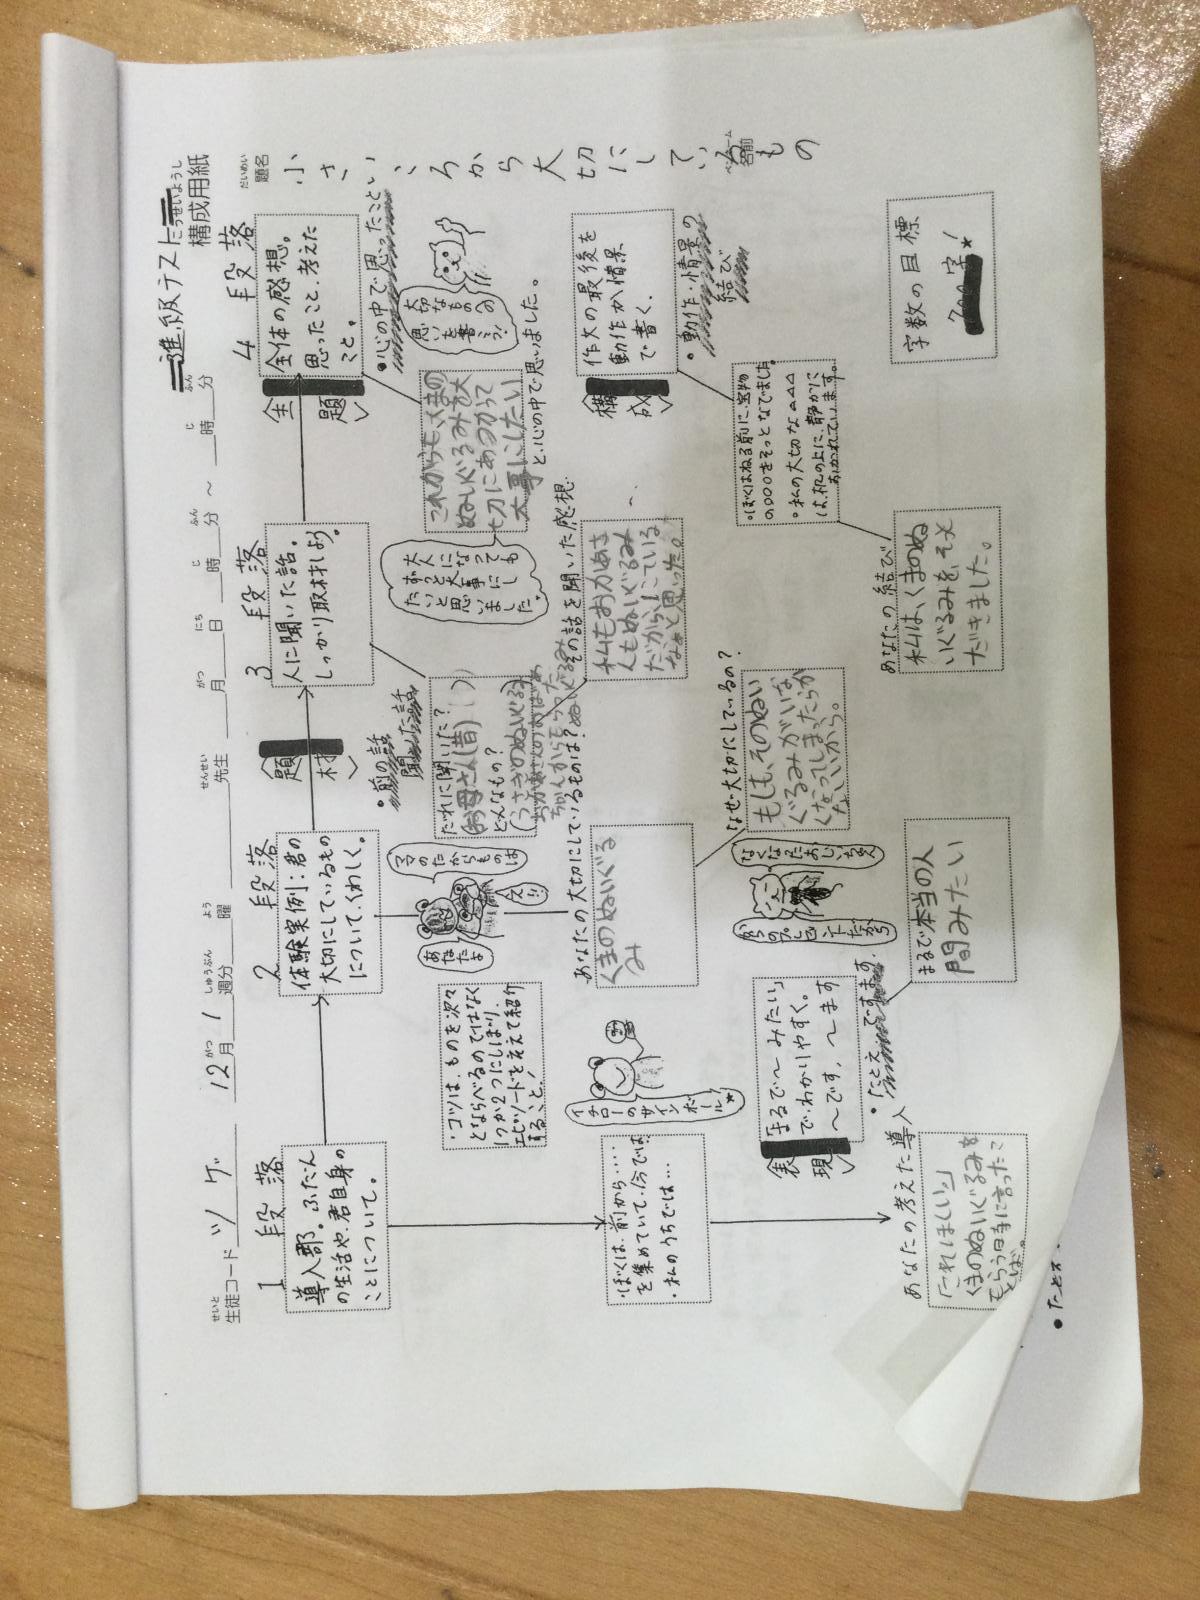 進級テスト
こうせいようし
構成用紙
だいめい
題名
小さいころから大切にしているもの
せいと
生徒コード ツ ゲ 12月 1 週分 曜 先生 月 日 時 分 ～ 時 分
がつ しゅうぶん よう せんせい がつ にち じ ふん じ ふん
1段落
導入部。ふだん
の生活や、君自身の
ことについて。
・ぼくは、前から・・・・
を集めていて、今では、
・私のうちでは・・・
あなたの考えた導入
「これほしい。」
くまのぬいぐるみを
もらう時に言ったこ
とば。
2段落
体験実例:君の
大切にしているもの
について、くわしく。
・コツは、ものを次々
とならべるのではなく
1つか2つにしぼり、
エピソードをそえて紹介
すること!
ママのたからものは
あなたよ
えっ!!
イチローのサインボール!
あなたの大切にしているものは?
くまのぬいぐる
み
なぜ大切にしているの?
もしも、そのぬい
ぐるみがいな
くなってしまったらか
なしいから。
なくなったおじいちゃん
からのプレゼントだから
〈表現〉
「まるで～みたい」
で、わかりやすく。
～です。～ます
・たとえ ですます
まるで本当の人
間みたい
3段落
人に聞いた話。
しっかり取材しよう。
〈題材〉
・前の話
聞いた話
だれに聞いた?
(お母さん(昔))
どんなもの?
(うさぎのぬいぐるみ)
その話を聞いた感想
私もおかあさ
んもぬいぐるみ
だからにている
なぁと思った。
大人になっても
ずっと大事にし
たいと思い
ました。
4段落
全体の感想。
思ったこと、考えた
こと。
〈主題〉
・心の中で思ったこと
大切なものへの
思いを書こう!
これからも、くまの
ぬいぐるみを大
切にあつかって
大事にしたい
と、心の中で思いました。
〈構成〉
作文の最後を
動作か情景
で書く。
・動作・情景の
結び
・ぼくはねる前に、宝物
の○○○をそっとなでました。
・私の大切な△△△
は、机の上に、静かに
おかれています。
あなたの結び
私は、くまのぬ
いぐるみを、そっと
だきました。
字数の目標
字!
・たとえ